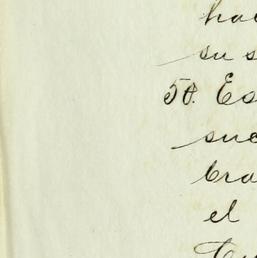 ha
su s
5º. Es
suc
bra
el